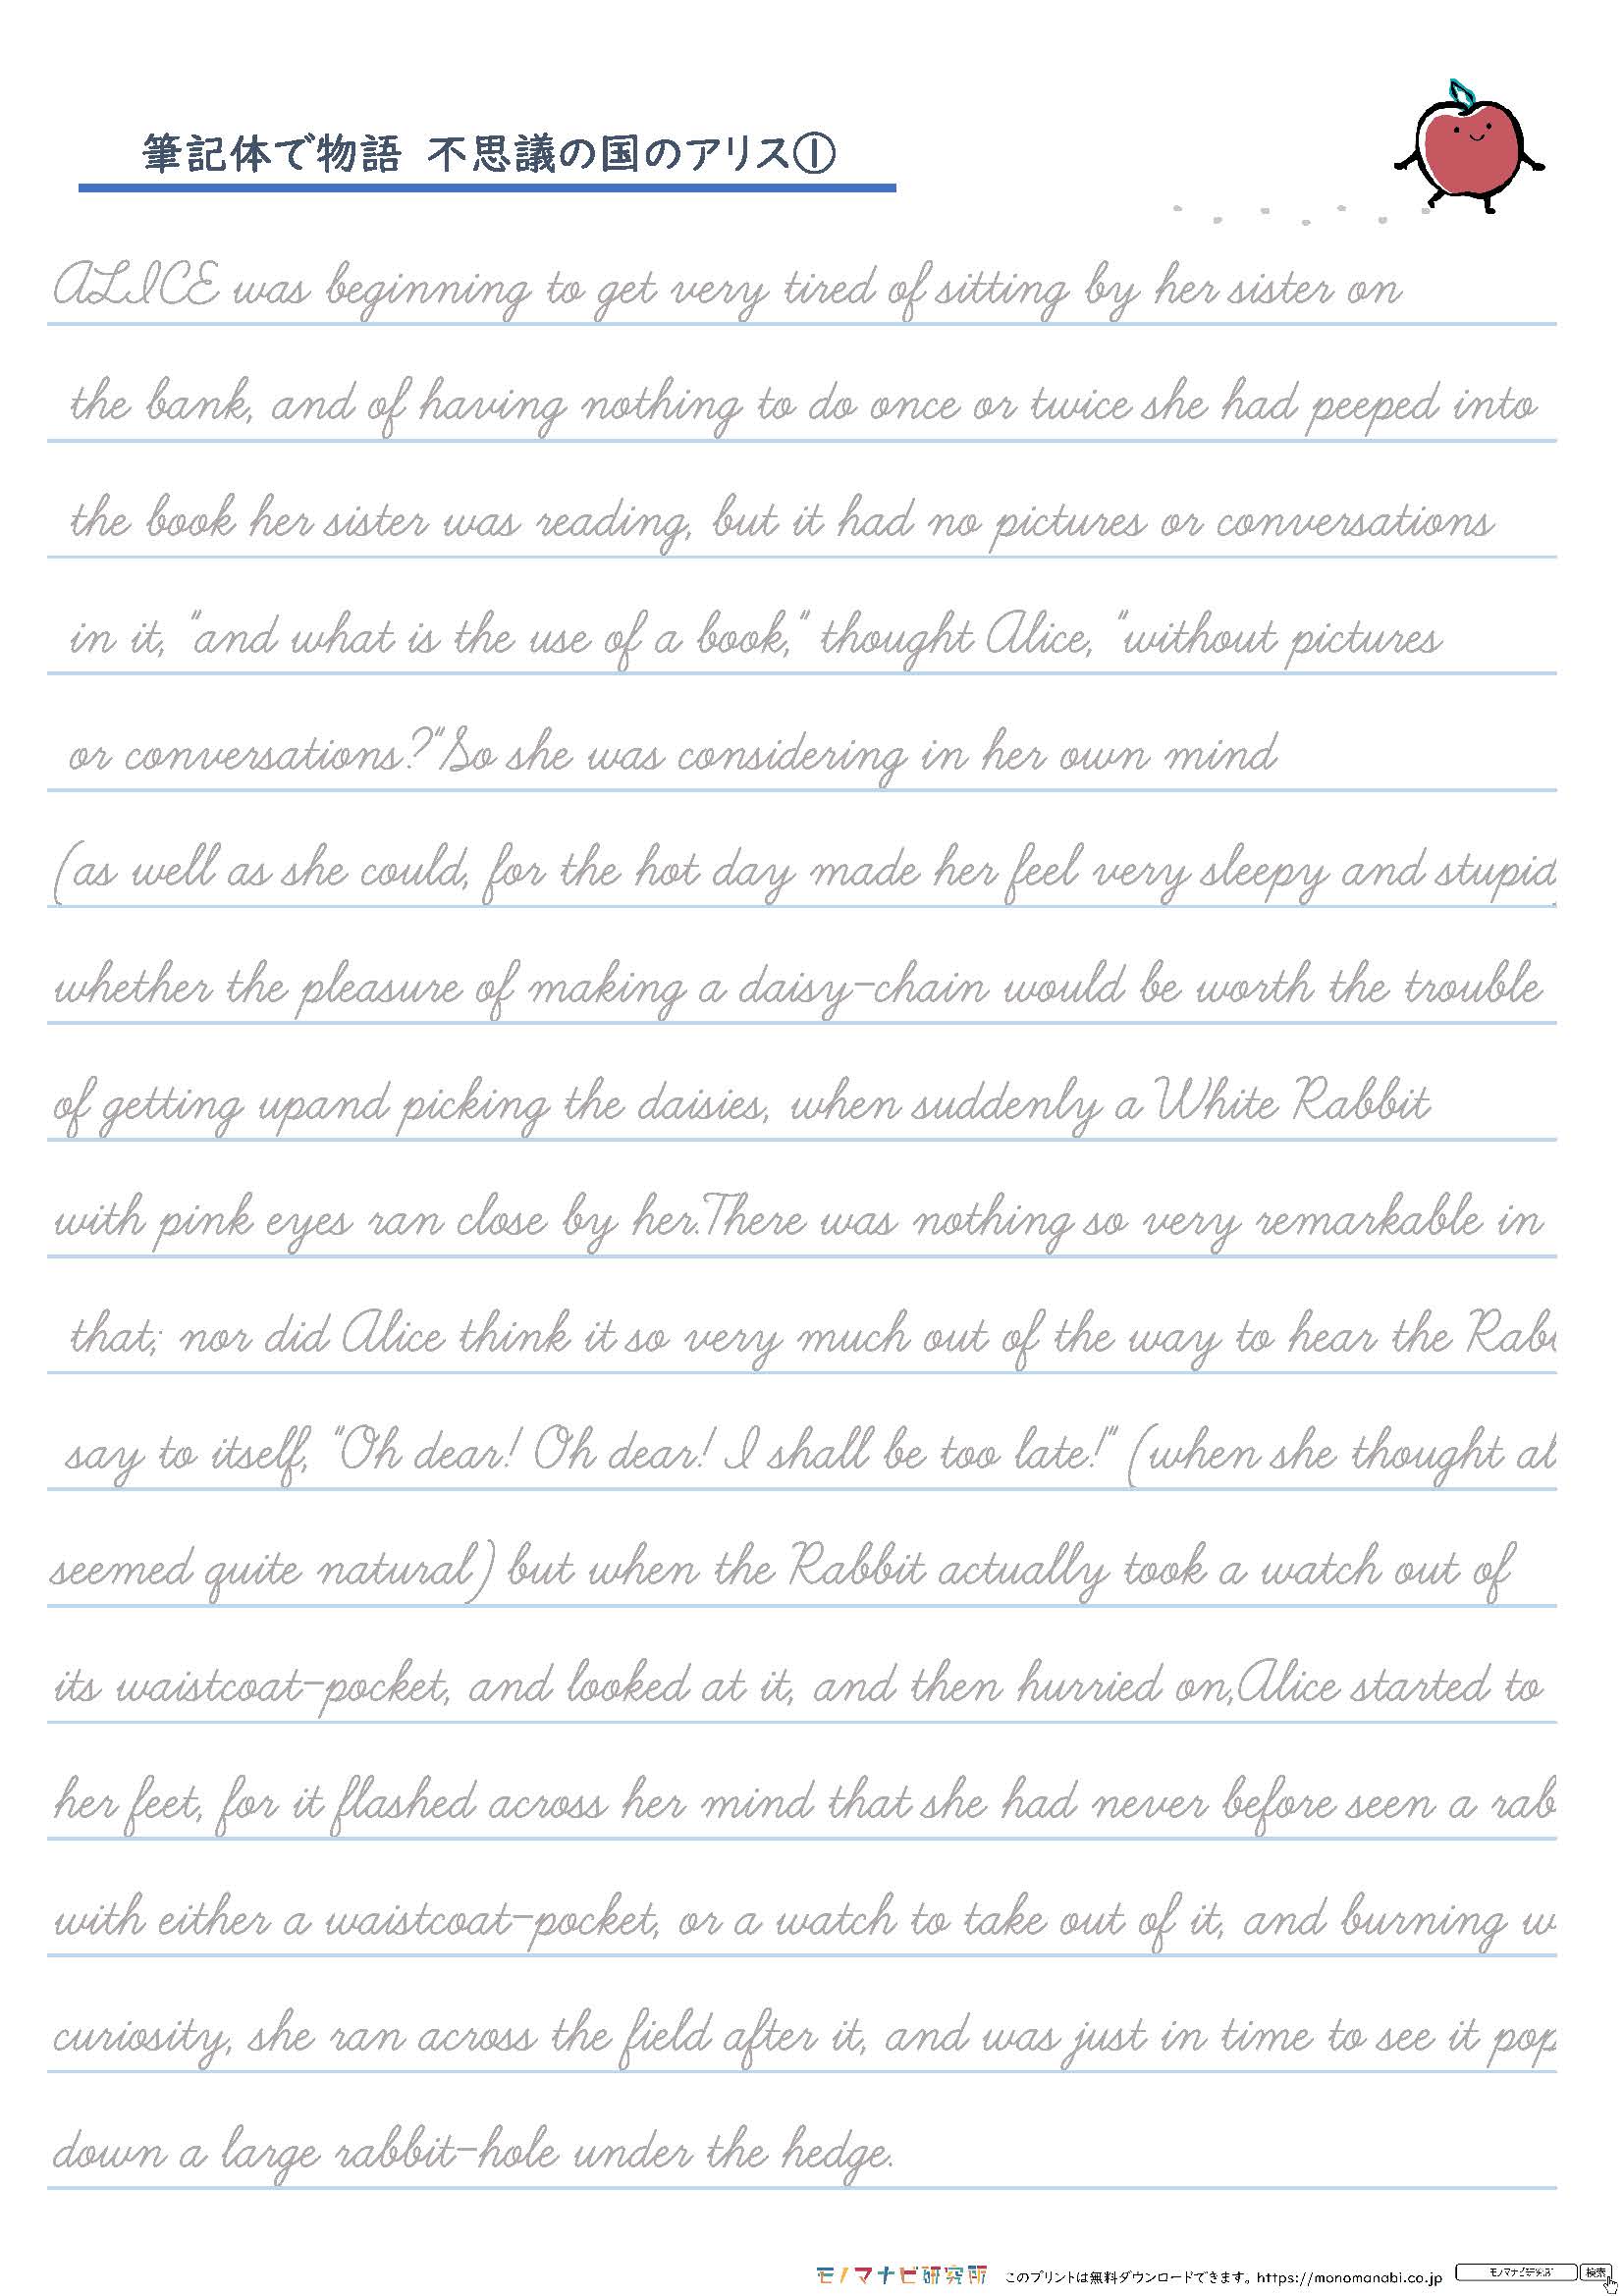 筆記体で物語 不思議の国のアリス①
ALICE was beginning to get very tired of sitting by her sister on
the bank, and of having nothing to do once or twice she had peeped into
the book her sister was reading, but it had no pictures or conversations
in it, "and what is the use of a book," thought Alice, "without pictures
or conversations?"So she was considering in her own mind
(as well as she could, for the hot day made her feel very sleepy and stupid
whether the pleasure of making a daisy-chain would be worth the trouble
of getting upand picking the daisies, when suddenly a White Rabbit
with pink eyes ran close by her.There was nothing so very remarkable in
that; nor did Alice think it so very much out of the way to hear the
say to itself, "Oh dear! Oh dear! I shall be too late!" (when she thought
seemed quite natural) but when the Rabbit actually took a watch out of
its waistcoat-pocket, and looked at it, and then hurried on,Alice started to
her feet, for it flashed across her mind that she had never before seen a rab
with either a waistcoat-pocket, or a watch to take out of it, and burning w
curiosity, she ran across the field after it, and was just in time to see it pop
down a large rabbit-hole under the hedge.
モノマナビ研究所 このプリントは無料ダウンロードできます。https://monomanabi.co.jp モノマナビ研究所 検索